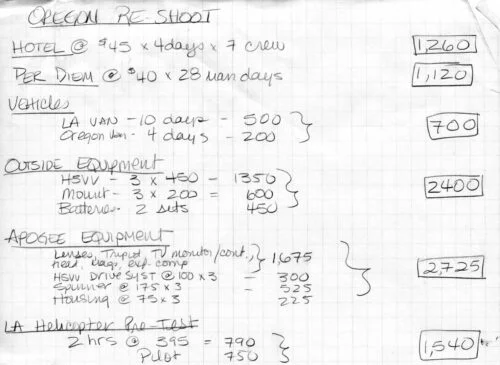 OREGON RE-SHOOT
HOTEL @ $45 x 4days x 7 crew 1,260
PER DIEM @ $40 x 28 Man days 1,120
VEHICLES
LA VAN - 10 days - 500
Oregon Van - 4 days - 200 700
OUTSIDE EQUIPMENT
HSVV - 3 x 450 = 1350
Mount - 3 x 200 = 600 2400
Batteries - 2 sets 450
APOGEE EQUIPMENT
Lenses, Tripod, TV monitor/cont,
head, mags, exp. comp 1,675
HSVV DRIVE SYST @ 100 x 3 - 300 2,725
Spinner @ 175 x 3 = 525
Housing @ 75 x 3 225
LA Helicopter Pre-Test
2 hrs @ 395 = 790 1,540
Pilot 750